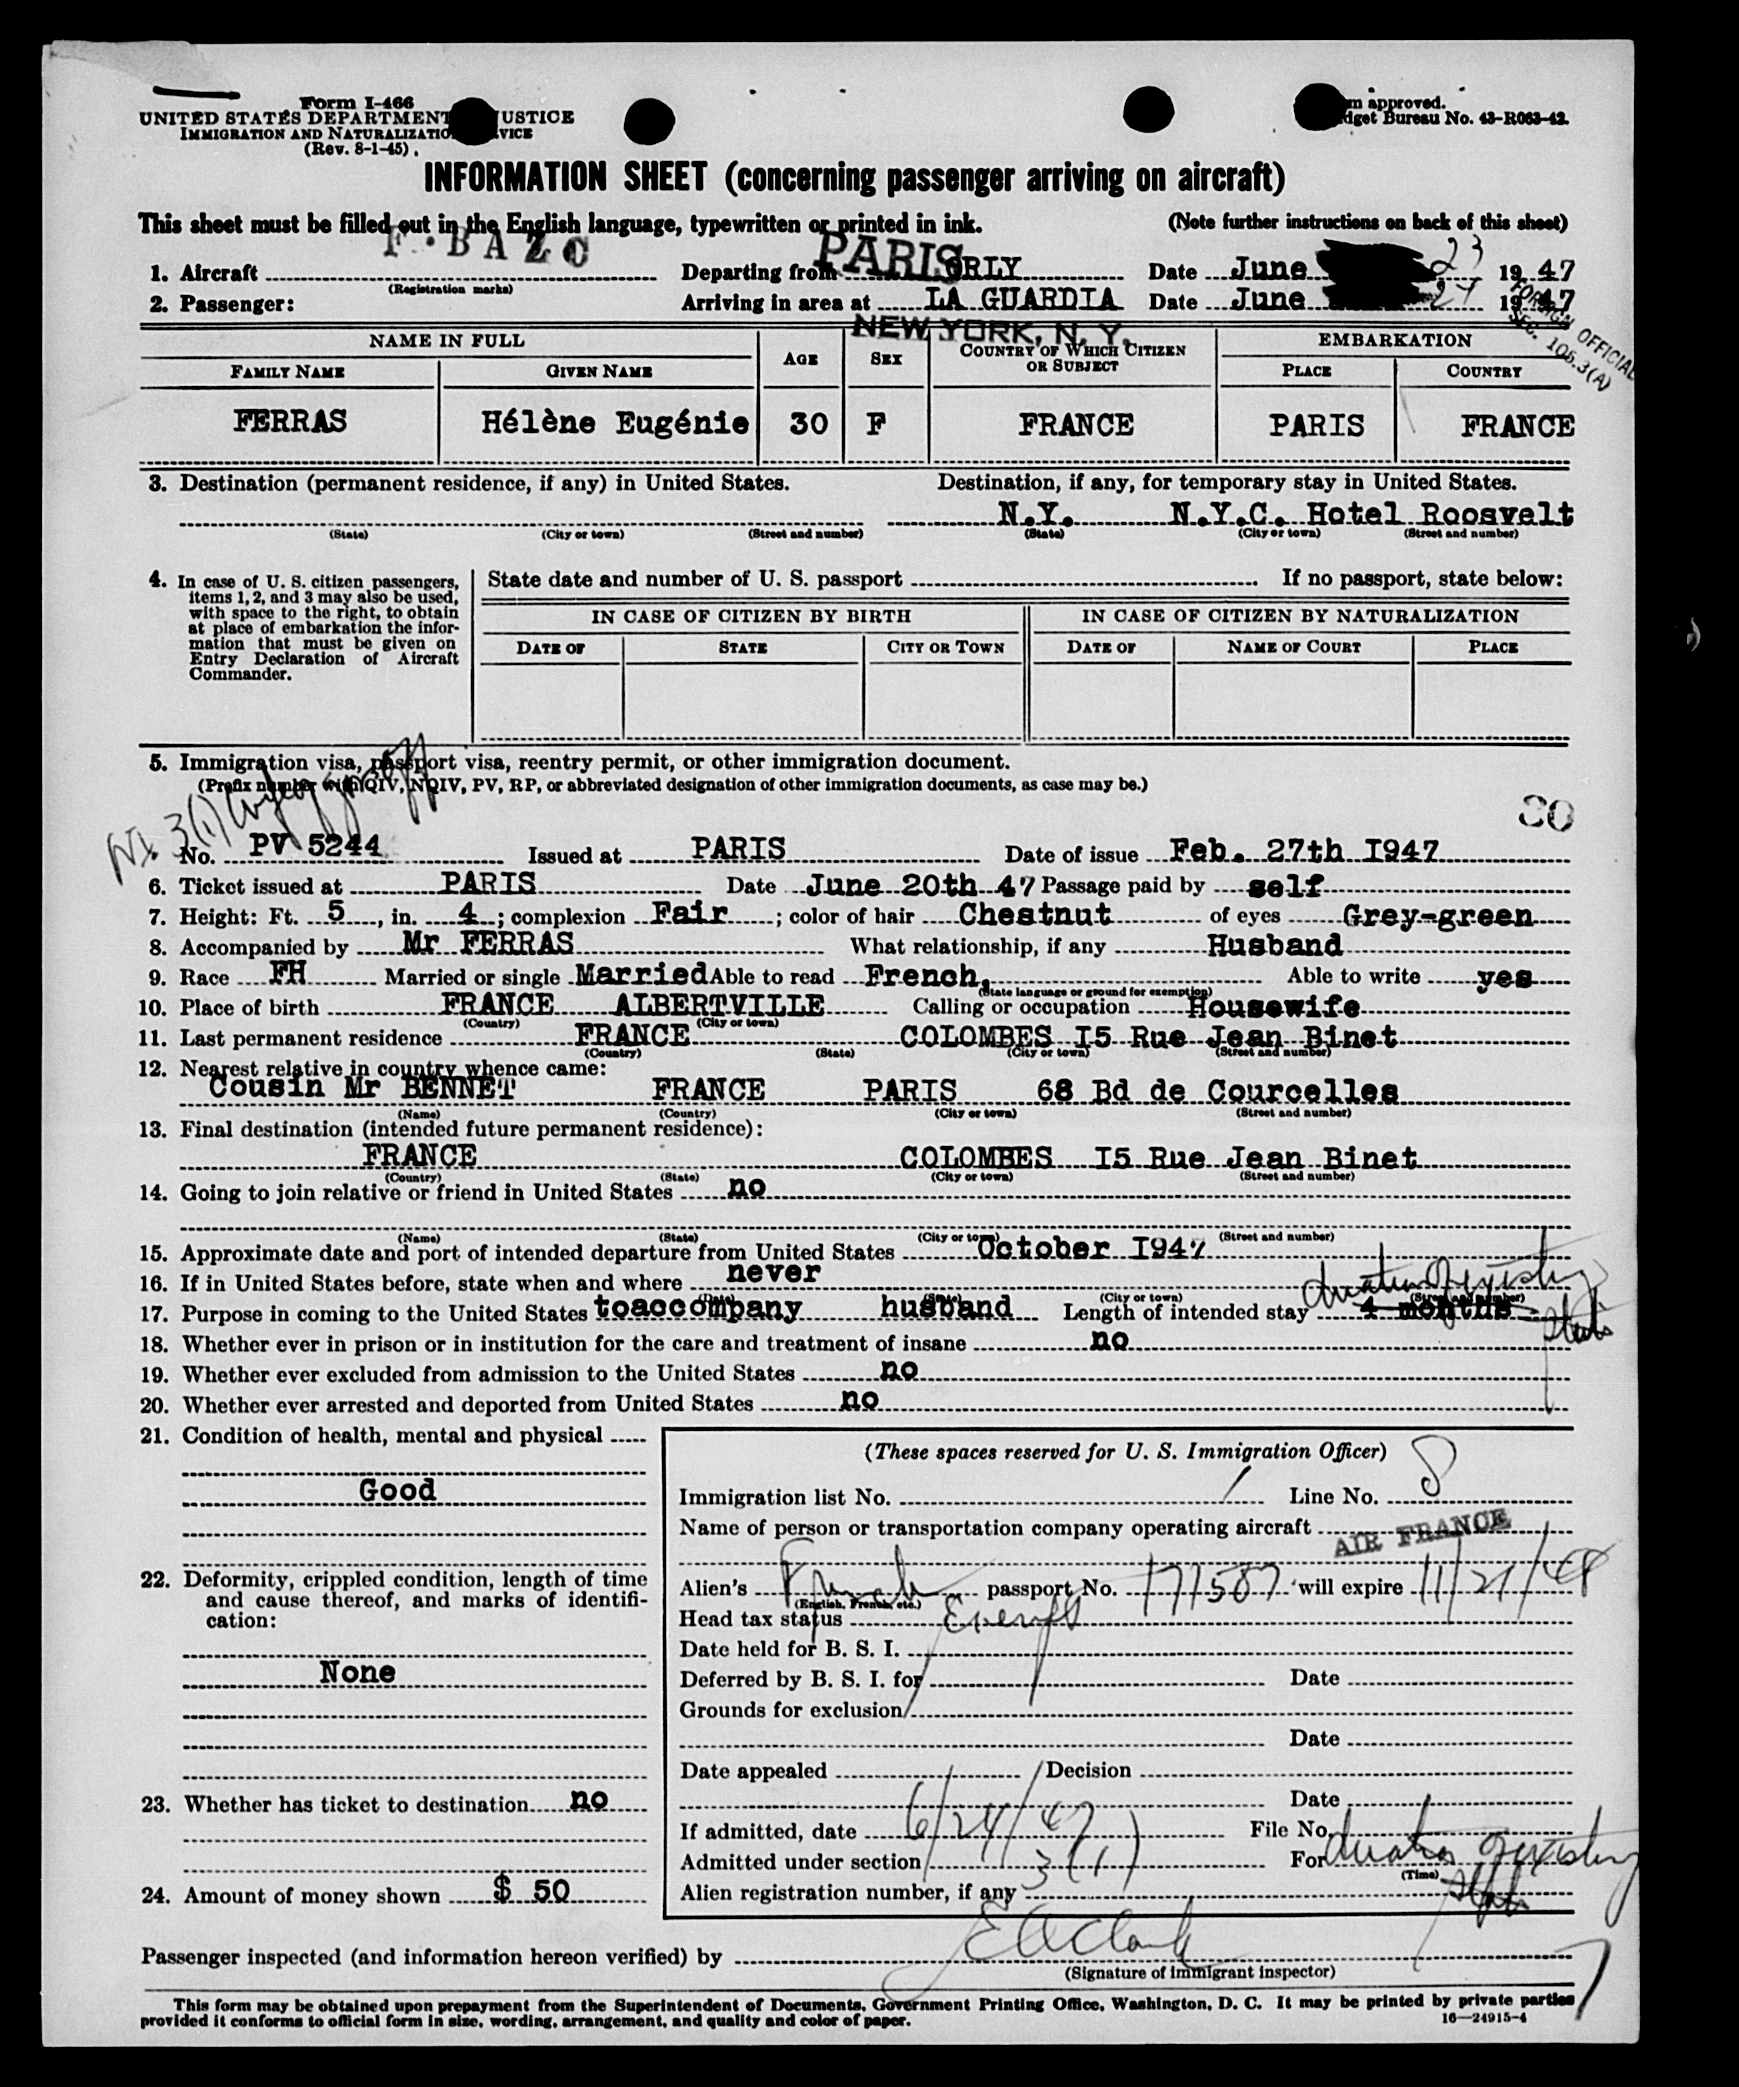 Form I-466
UNITED STATES DEPARTMENT JUSTICE
IMMIGRATION AND NATURALIZATION SERVICE
(Rev. 8-1-45)
Form approved.
Budget Bureau No. 43-R063-42.
INFORMATION SHEET (concerning passenger arriving on aircraft)
This sheet must be filled out in the English language, typewritten or printed in ink. (Note further instructions on back of this sheet)
F·BAZC PARIS
1. Aircraft Departing from ORLY Date June 23 1947
(Registration marks)
2. Passenger: Arriving in area at LA GUARDIA Date June 24 1947
NEW YORK, N. Y.
FOREIGN OFFICIAL
SEC. 105.3(A)
NAME IN FULL AGE SEX COUNTRY OF WHICH CITIZEN OR SUBJECT EMBARKATION
FAMILY NAME GIVEN NAME PLACE COUNTRY
FERRAS Hélène Eugénie 30 F FRANCE PARIS FRANCE
3. Destination (permanent residence, if any) in United States. Destination, if any, for temporary stay in United States.
N.Y. N.Y.C. Hotel Roosvelt
(State) (City or town) (Street and number) (State) (City or town) (Street and number)
4. In case of U. S. citizen passengers,
items 1, 2, and 3 may also be used,
with space to the right, to obtain
at place of embarkation the infor-
mation that must be given on
Entry Declaration of Aircraft
Commander.
State date and number of U. S. passport If no passport, state below:
IN CASE OF CITIZEN BY BIRTH IN CASE OF CITIZEN BY NATURALIZATION
DATE OF STATE CITY OR TOWN DATE OF NAME OF COURT PLACE
5. Immigration visa, passport visa, reentry permit, or other immigration document.
(Prefix number with QIV, NQIV, PV, RP, or abbreviated designation of other immigration documents, as case may be.)
3(1)
30
No. PV 5244 Issued at PARIS Date of issue Feb. 27th I947
6. Ticket issued at PARIS Date June 20th 47 Passage paid by self
7. Height: Ft. 5, in. 4; complexion Fair; color of hair Chestnut of eyes Grey-green
8. Accompanied by Mr FERRAS What relationship, if any Husband
9. Race FH Married or single Married Able to read French, Able to write yes
(State language or ground for exemption)
10. Place of birth FRANCE ALBERTVILLE Calling or occupation Housewife
(Country) (City or town)
11. Last permanent residence FRANCE COLOMBES I5 Rue Jean Binet
(Country) (State) (City or town) (Street and number)
12. Nearest relative in country whence came:
Cousin Mr BENNET FRANCE PARIS 68 Bd de Courcelles
(Name) (Country) (City or town) (Street and number)
13. Final destination (intended future permanent residence):
FRANCE COLOMBES I5 Rue Jean Binet
(Country) (State) (City or town) (Street and number)
14. Going to join relative or friend in United States no
(Name) (State) (City or town) (Street and number)
15. Approximate date and port of intended departure from United States October I947
16. If in United States before, state when and where never
(Date) (State) (City or town) (Street and number)
duration of existing status
17. Purpose in coming to the United States toaccompany husband Length of intended stay 4 months
18. Whether ever in prison or in institution for the care and treatment of insane no
19. Whether ever excluded from admission to the United States no
20. Whether ever arrested and deported from United States no
21. Condition of health, mental and physical
Good
22. Deformity, crippled condition, length of time
and cause thereof, and marks of identifi-
cation:
None
23. Whether has ticket to destination no
24. Amount of money shown $ 50
(These spaces reserved for U. S. Immigration Officer)
Immigration list No. 1 Line No. 8
Name of person or transportation company operating aircraft AIR FRANCE
Alien's French passport No. 171587 will expire 11/21/48
(English, French, etc.)
Head tax status Exempt
Date held for B. S. I.
Deferred by B. S. I. for Date
Grounds for exclusion
Date
Date appealed Decision
Date
If admitted, date 6/24/47 File No.
Admitted under section 3(1) For duration of existing status
(Time)
Alien registration number, if any
Passenger inspected (and information hereon verified) by E A Clark
(Signature of immigrant inspector)
This form may be obtained upon prepayment from the Superintendent of Documents, Government Printing Office, Washington, D. C. It may be printed by private parties
provided it conforms to official form in size, wording, arrangement, and quality and color of paper.
16—24915-4